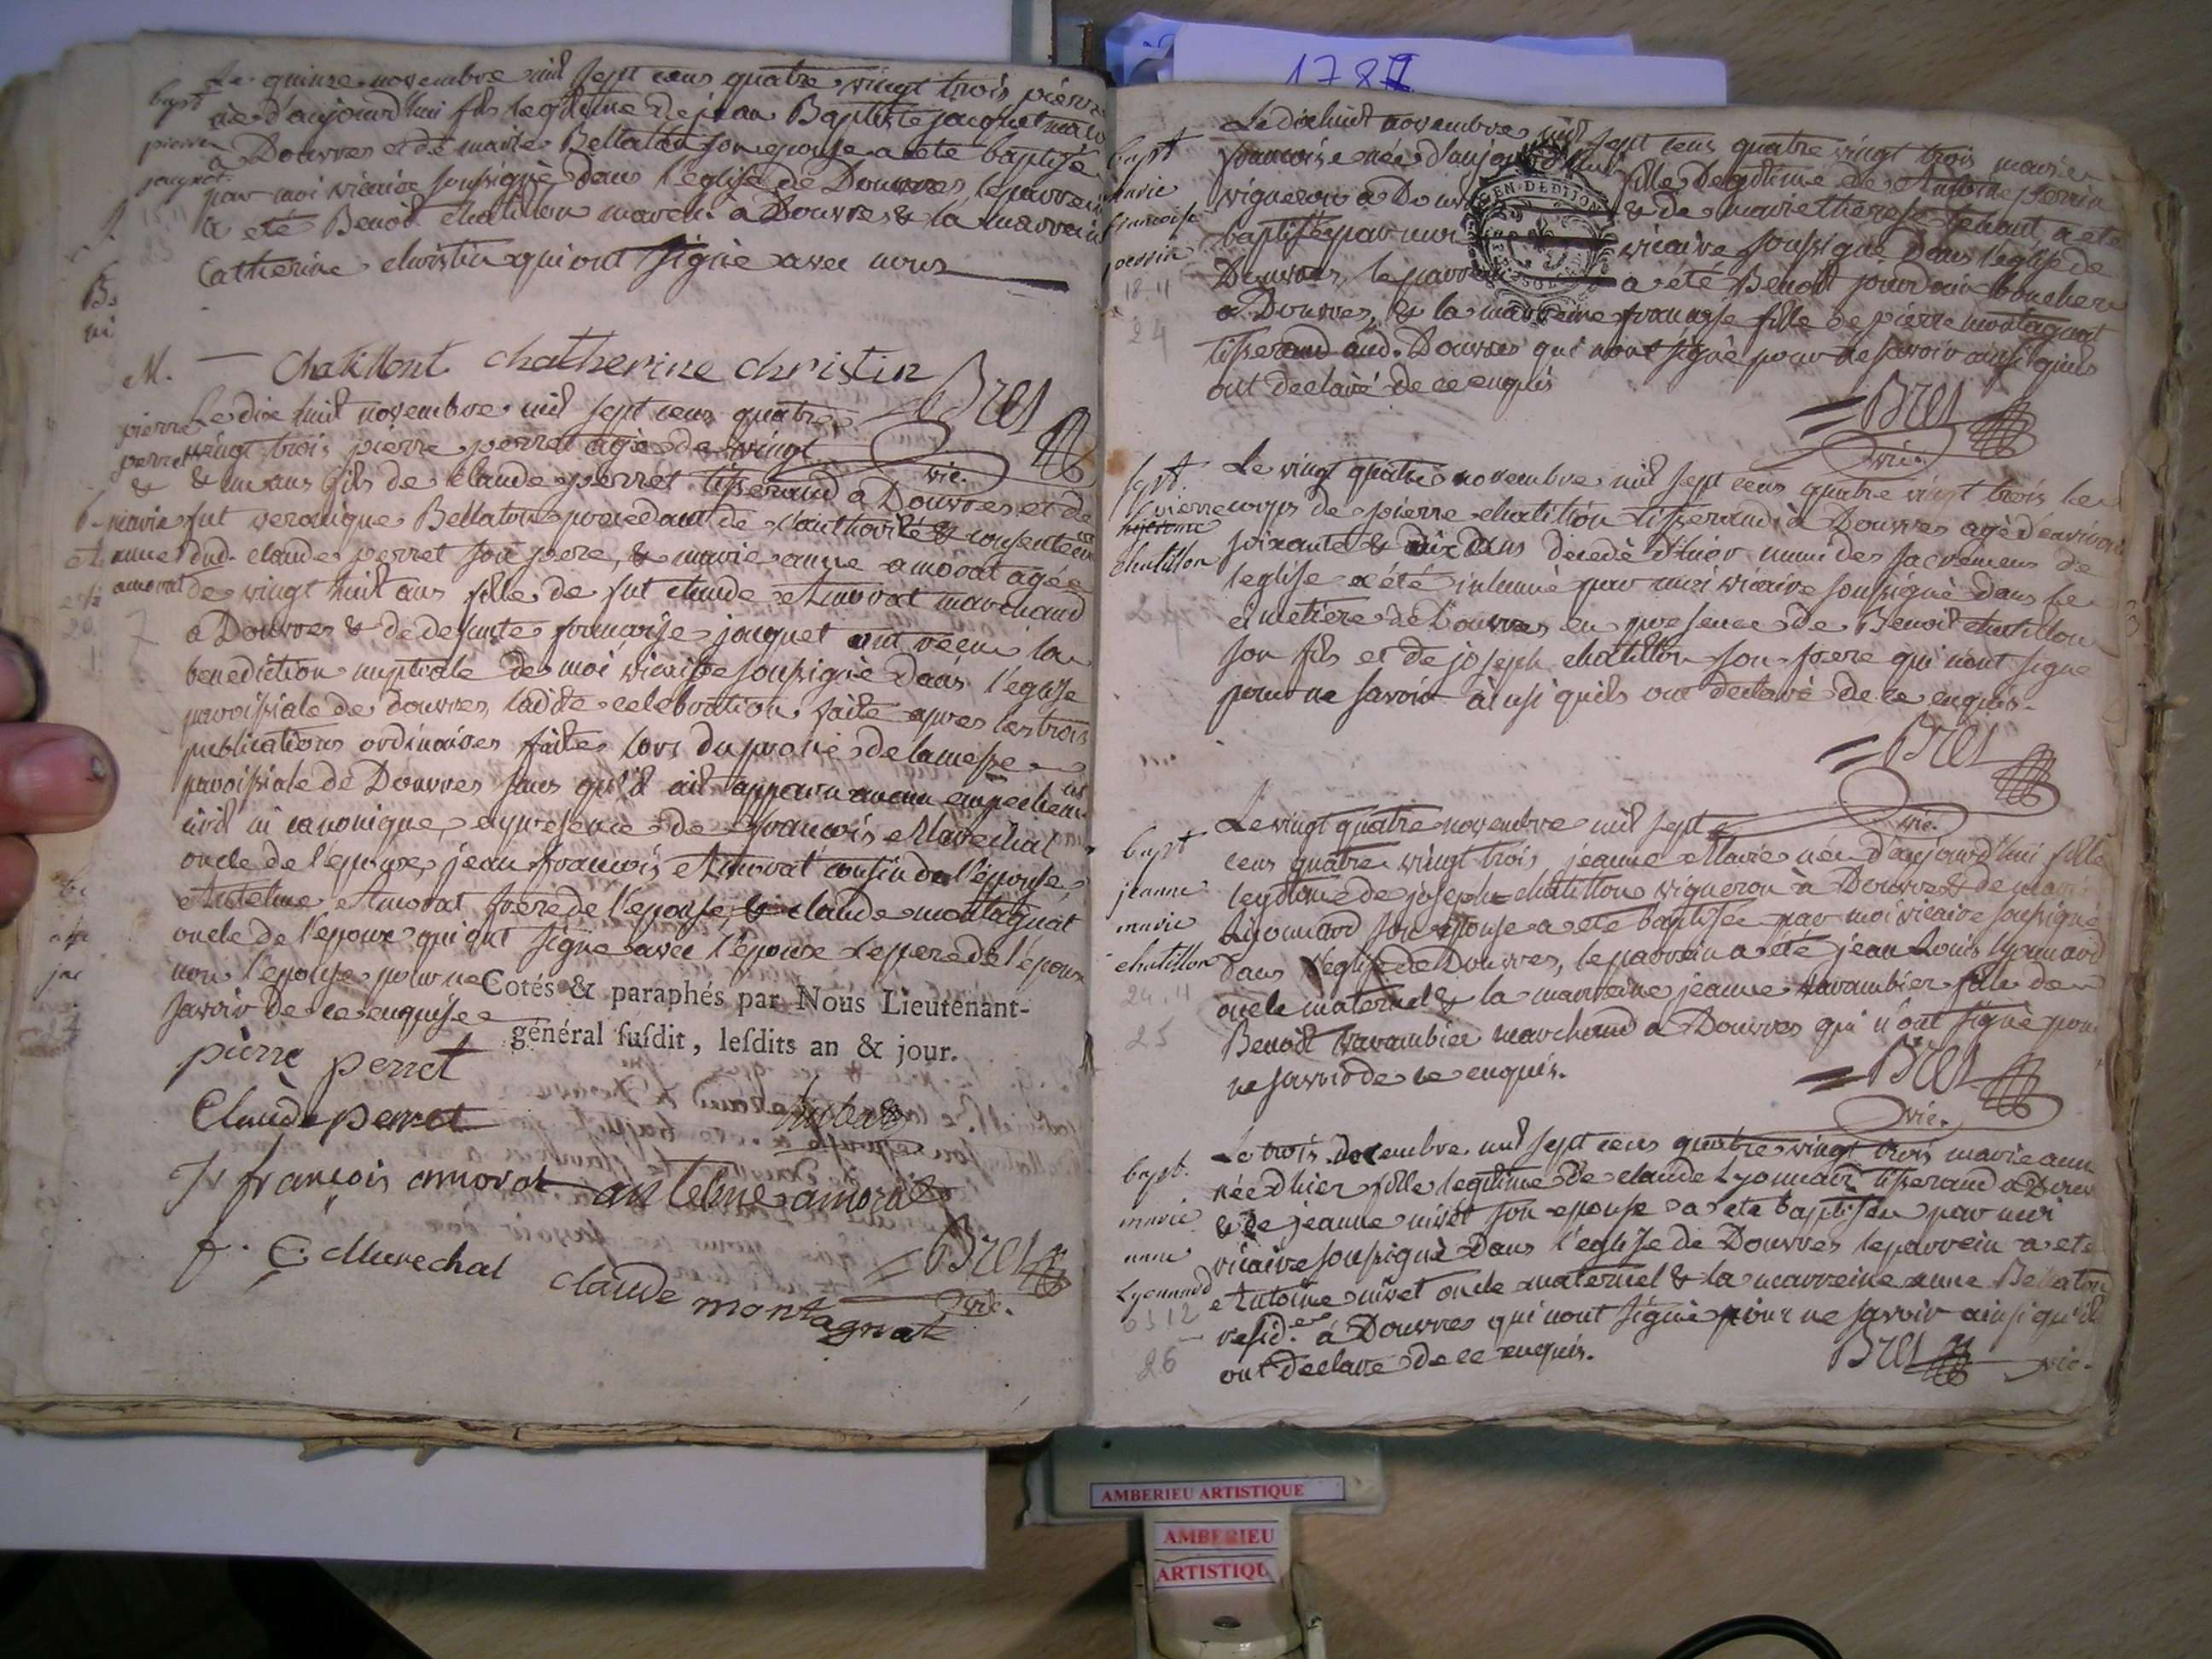 Le quinze novembre mil sept cens quatre vingt trois pierre
né d'aujourd'hui fils legitime de jean Baptiste jacquet
a Douvres et de marie Bellaton son epouse a eté baptisé
par moi vicaire soussigné dans l'eglise de Douvres le parrein
a eté Benoit chatillon a Douvres & la marreine
Catherine christin qui ont signé avec nous
bapt
pierre
jacquet
Chatillont chatherine christin
Bres
vic.
M.
pierre
perret
&
marie
anne
amorat
Le dix huit novembre mil sept cens quatre
vingt trois pierre perret agé de vingt
& un ans fils de claude perret tisserand a Douvres et de
fut veronique Bellaton procedant de l'authorité & consentement
dud. claude perret son pere, & marie anne amorat agée
de vingt huit ans fille de fut claude Amorat marchand
a Douvres & de defunte francoise jacquet ont recu la
benediction nuptiale de moi vicaire soussigné dans l'eglise
paroissiale de douvres, ladite celebration faite apres les trois
publications ordinaires faites lors du prone de la messe
paroissiale de Douvres sans qu'il ait apparu aucun empechement
civil ni canonique, en presence de francois Marechal
oncle de l'epouse, jean francois Amorat cousin de l'épouse,
Antelme Amorat frere de l'epouse & claude montagnat
oncle de l'epoux qui ont signé avec l'époux le pere de l'époux
non l'epouse pour ne
savoir de ce enquise
Cotés & paraphés par Nous Lieutenant-
général susdit, lesdits an & jour.
pierre perret
Claude perret
J francois amorat antelme amorat
f. C. Marechal
claude montagnat
Bres
vic.
1787
bapt
marie
francoise
perrin
18.11
24
Le dixhuit novembre mil sept cens quatre vingt trois marie
francoise née d'aujourd'hui fille legitime de Antoine perrin
vigneron a Douvres & de marie therese a eté
baptisée par moi vicaire soussigné dans l'eglise de
Douvres, le parrein a été Benoit jourdain boucher
a Douvres, & la marreine francoise fille de pierre montagnat
tisserand aud. Douvres qui n'ont signé pour ne savoir ainsi quils
ont declaré de ce enquis
GEN. DE DIJON
Bres
vic.
sept.
pierre
chatillon
Le vingt quatre novembre mil sept cens quatre vingt trois le
corps de pierre chatillon tisserand à Douvres agé d'environ
soixante & dix ans decedé d'hier muni des sacremens de
l'eglise a été inhumé par moi vicaire soussigné dans le
cimetiere de Douvres en presence de Benoit chatillon
son fils et de joseph chatillon son frere qui n'ont signé
pour ne savoir ainsi quils ont declaré de ce enquis.
Bres
vic.
bapt
jeanne
marie
chatillon
24.11
25
Le vingt quatre novembre mil sept
cens quatre vingt trois, jeanne Marie née d'aujourd'hui fille
legitime de joseph chatillon vigneron à Douvres & de marie
Liyonnard son epouse a eté baptisée par moi vicaire soussigné
dans l'eglise de Douvres, le parrein a été jean Louis lyonnard
oncle maternel & la marreine jeanne varambier fille de
Benoit varambier marchand a Douvres qui n'ont signé pour
ne savoir de ce enquis.
Bres
vic.
bapt.
marie
anne
Lyonnard
03 12
26
Le trois decembre mil sept cens quatre vingt trois marie anne
née d'hier fille legitime de claude Lyonnard tisserand a Douvres
& de jeanne nivet son epouse a eté baptisée par moi
vicaire soussigné dans l'eglise de Douvres le parrein a eté
Antoine nivet oncle maternel & la marreine anne Bellaton
resid. à Douvres qui n'ont signé pour ne savoir ainsi qu'ils
ont declaré de ce enquis.
Bres vic.
AMBERIEU ARTISTIQUE
AMBERIEU
ARTISTIQU